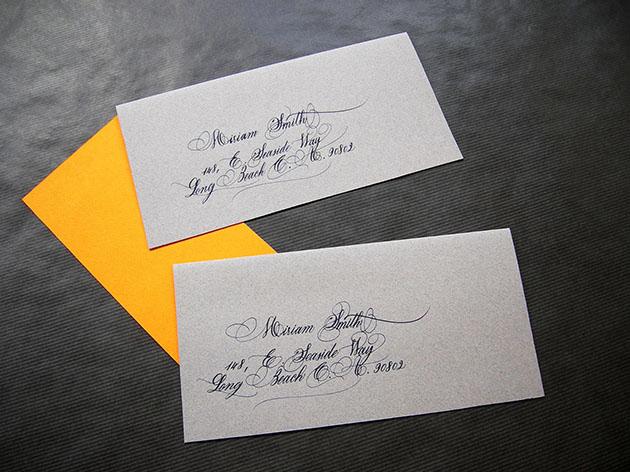 Miriam Smith
148, E. Seaside Way
Long Beach C. A. 90802
Miriam Smith
148, E. Seaside Way
Long Beach C. A. 90802